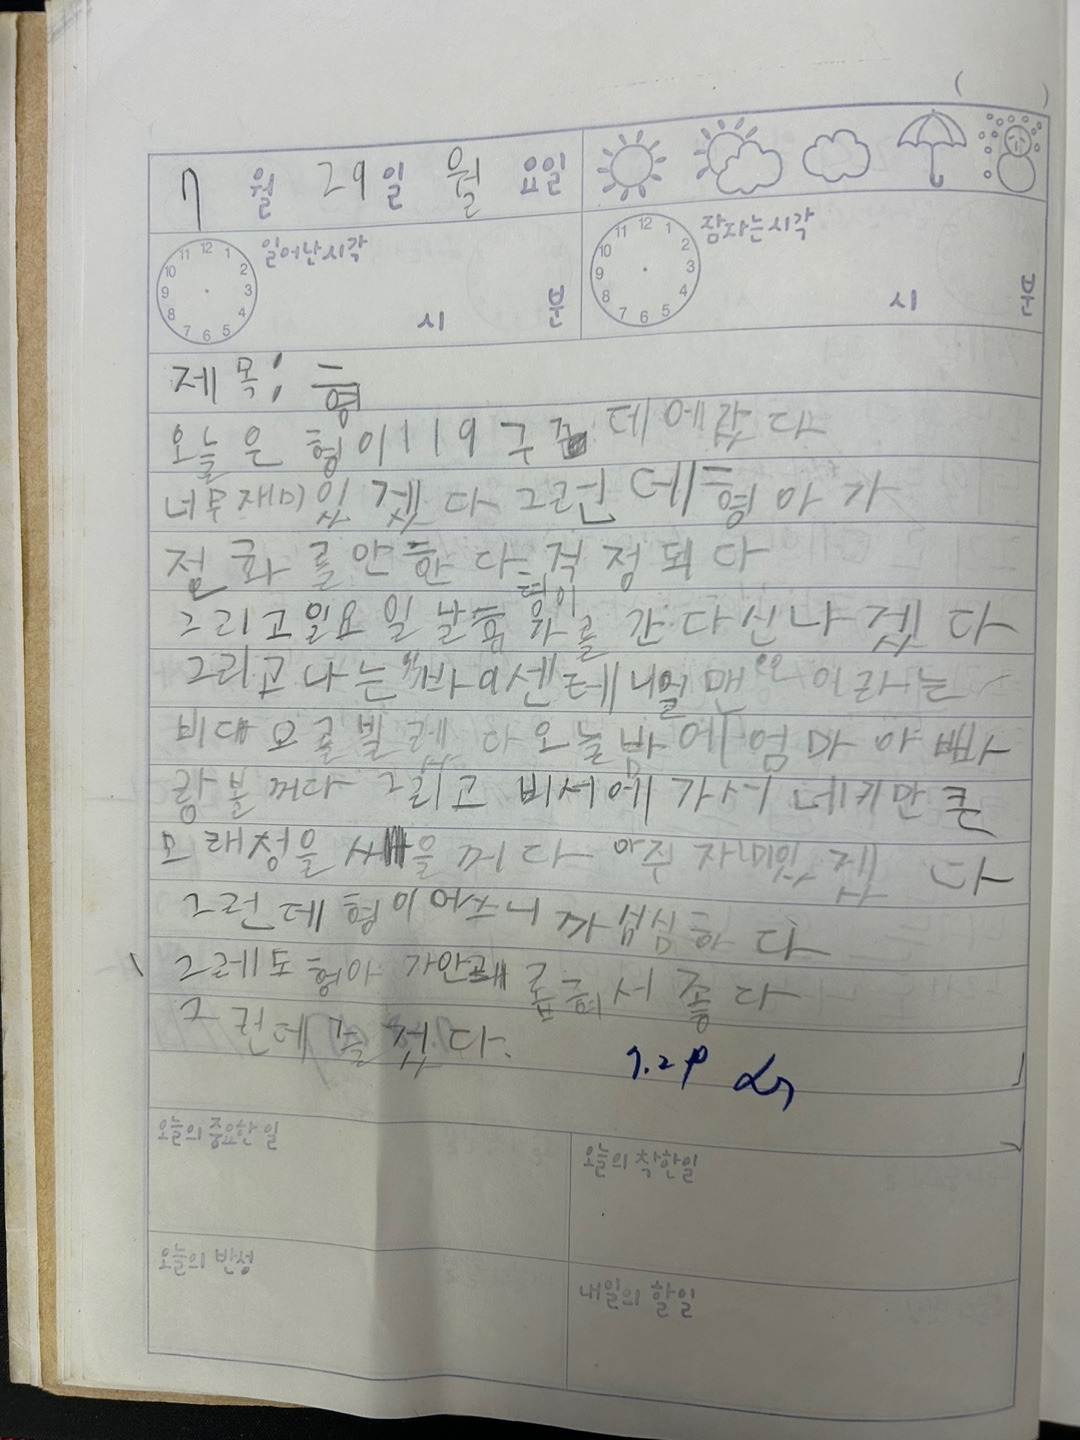 7 월 29 일 월 요일
일어난시각 시 분
잠자는시각 시 분
12 1 2 3 4 5 6 7 8 9 10 11
12 1 2 3 4 5 6 7 8 9 10 11
제목: 형
오늘은 형이 119 구 데에 갔다
너무재미있겠다 그런데 형아가
전화를안한다 걱정돼다
그리고일요일날 형이 휴가를 간다신나겠다
그리고나는 "바이센테니얼맨" 이라는
비대오를빌렸다 오늘밤에 엄마아빠
랑볼꺼다 그리고 비서에가서 네키만큰
모래성을 을꺼다 아주재미있겠다
그런데 형이 어쓰니까 섭섭하다
그레도 형아가안 서 좋다
그런데
7.29
오늘의 중요한 일
오늘의 착한일
오늘의 반성
내일의 할일